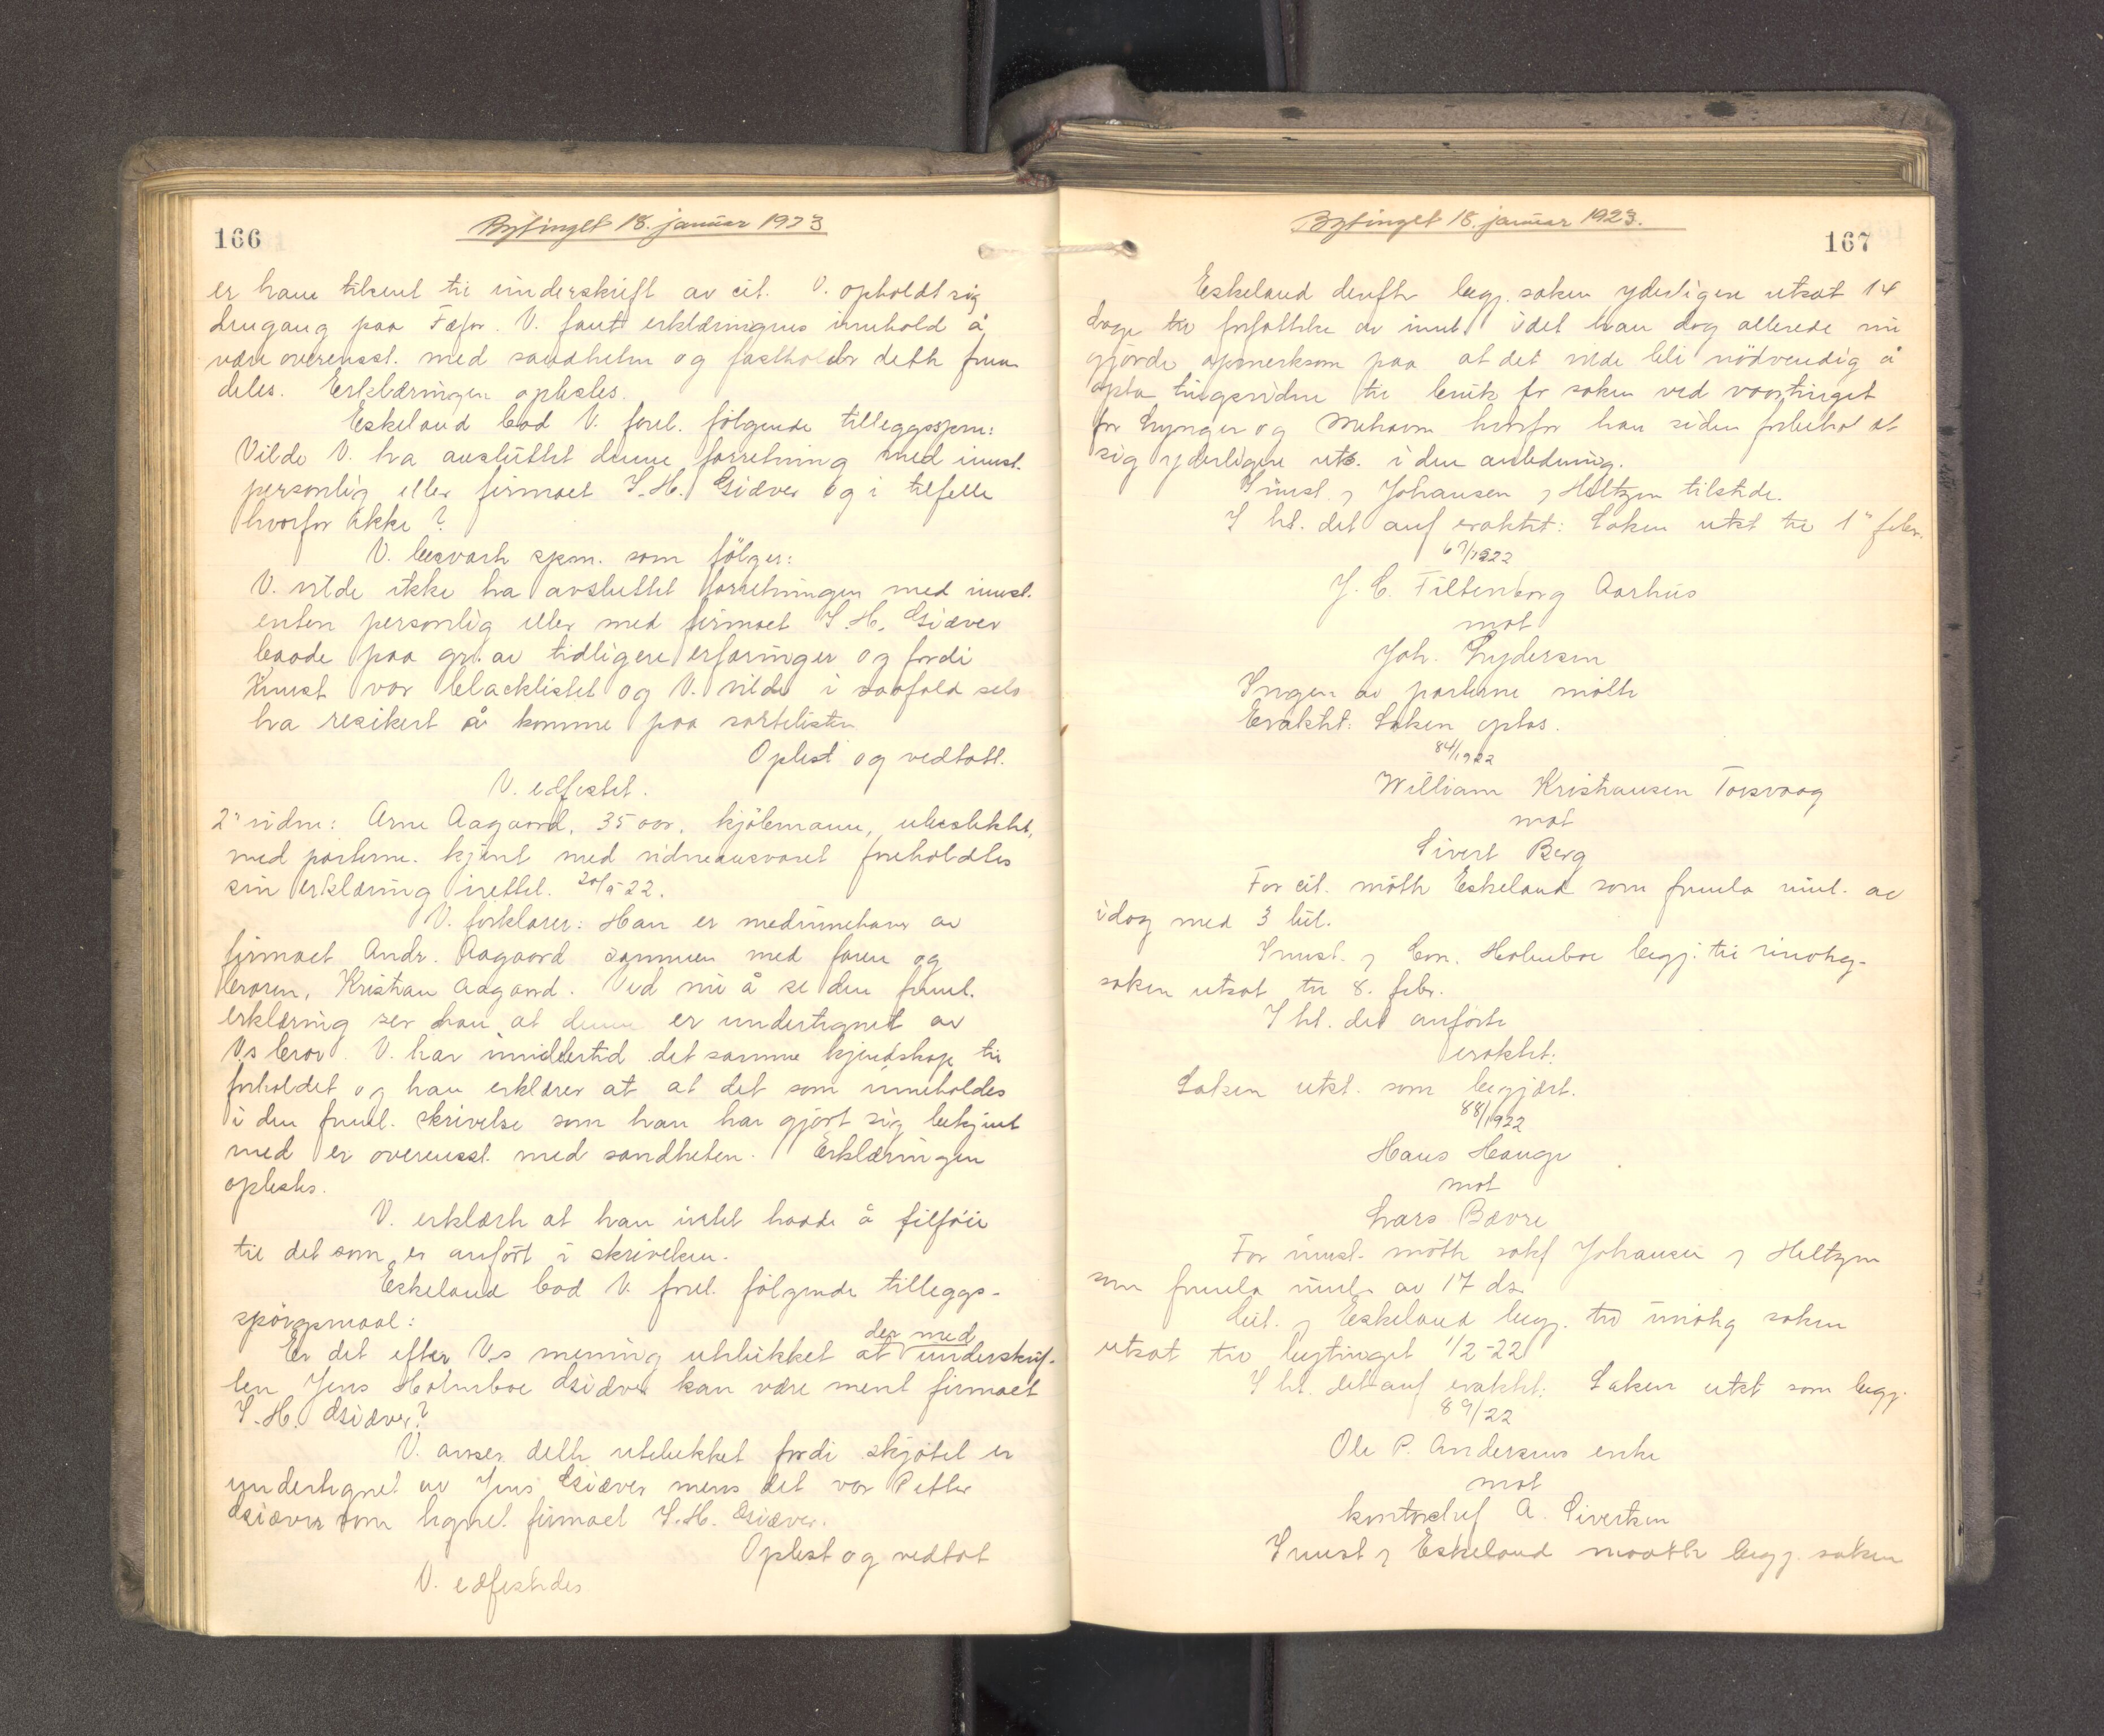 166
Bytinget 18. januar 1923
er ham tilsent til underskrift av cit. V. opholdt sig
dengang paa Fæfor. V. fant erklæringens innhold å
være overensst. med sandheten og fastholder dette frem
deles. Erklæringen oplestes.
Eskeland bad V. forel. følgende tilleggsspm:
Vilde V. ha avsluttet denne forretning med innst.
personlig eller firmaet I. H. Giæver og i tilfelle
hvorfor ikke?
V. besvarte spm. som følger:
V. vilde ikke ha avsluttet forretningen med innst.
enten personlig eller med firmaet I. H. Giæver
baade paa gr. av tidligere erfaringer og fordi
Innst var blacklistet og V. vilde i saafald selv
ha resikert å komme paa sortelisten
Oplest og vedtatt.
V. edfestet.
2" vidne: Arne Aagaard, 35 aar, kjøbmann, ubeslektet
med parterne. kjent med vidneansvaret foreholdtes
sin erklæring irettel. 20/5-22.
V. forklarer: Han er medinnehaver av
firmaet Andr. Aagaard sammen med faren og
broren, Kristian Aagaard. Ved nu å se den freml.
erklæring ser han at denne er undertegnet av
V.s bror. V. har imidlertid det samme kjendskap til
forholdet og han erklærer at at det som inneholdes
i den freml. skrivelse som han har gjort sig bekjent
med er overensst. med sandheten. Erklæringen
oplestes.
V. erklærte at han intet hadde å tilføie
til det som er anført i skrivelsen.
Eskeland bad V. forel. følgende tilleggs-
spørgsmaal:
der med
Er det efter V.s mening utelukket at underskrif-
ten Jens Holmboe Giæver kan være ment firmaet
I. H. Giæver?
V. anser dette utelukket fordi skjøtet er
undertegnet av Jens Giæver mens det var Petter
Giæver som tegnet firmaet I. H. Giæver.
Oplest og vedtat
V. edfestedes
Bytinget 18. januar 1923.
167
Eskeland derefter begj. saken yderligere utsat 14
dage til forfattelse av innl. idet han dog allerede nu
gjorde opmerksom paa at det vilde bli nødvendig å
opta tingsvidne til bruk for saken ved vaartinget
for Lyngen og Mehavn hvorfor han siden forbeholdt
sig yderligere uts. i den anledning.
Innst. v Johansen v Hiltzen tilstede.
I hl. det anf eraktet: Saken utst til 1" febr.
67/1922
J. C. Filtenborg Aarhus
mot
Joh. Lydersen
Ingen av parterne møtte
Eraktet: Saken optas.
84/1922
William Kristiansen Torsvaag
mot
Sivert Berg
For cit. møtte Eskeland som fremla innl. av
idag med 3 bil.
Innst. v Con. Holmboe begj. til imøteg-
saken utsat til 8. febr.
I hl. det anførte
eraktet:
Saken utst. som begjært.
88/1922
Hans Hauge
mot
Lars Bævre
For innst. møtte sakf Johansen v Hiltzen
som fremla innl. av 17 ds.
Cit. v Eskeland begj. til imøteg saken
utsat til bytinget 1/2-22
I hl. det anf eraktet: Saken utst som begj.
89/22
Ole P. Andersens enke
mot
kontorchef A. Sivertsen
Innst v Eskeland møtte begj. saken